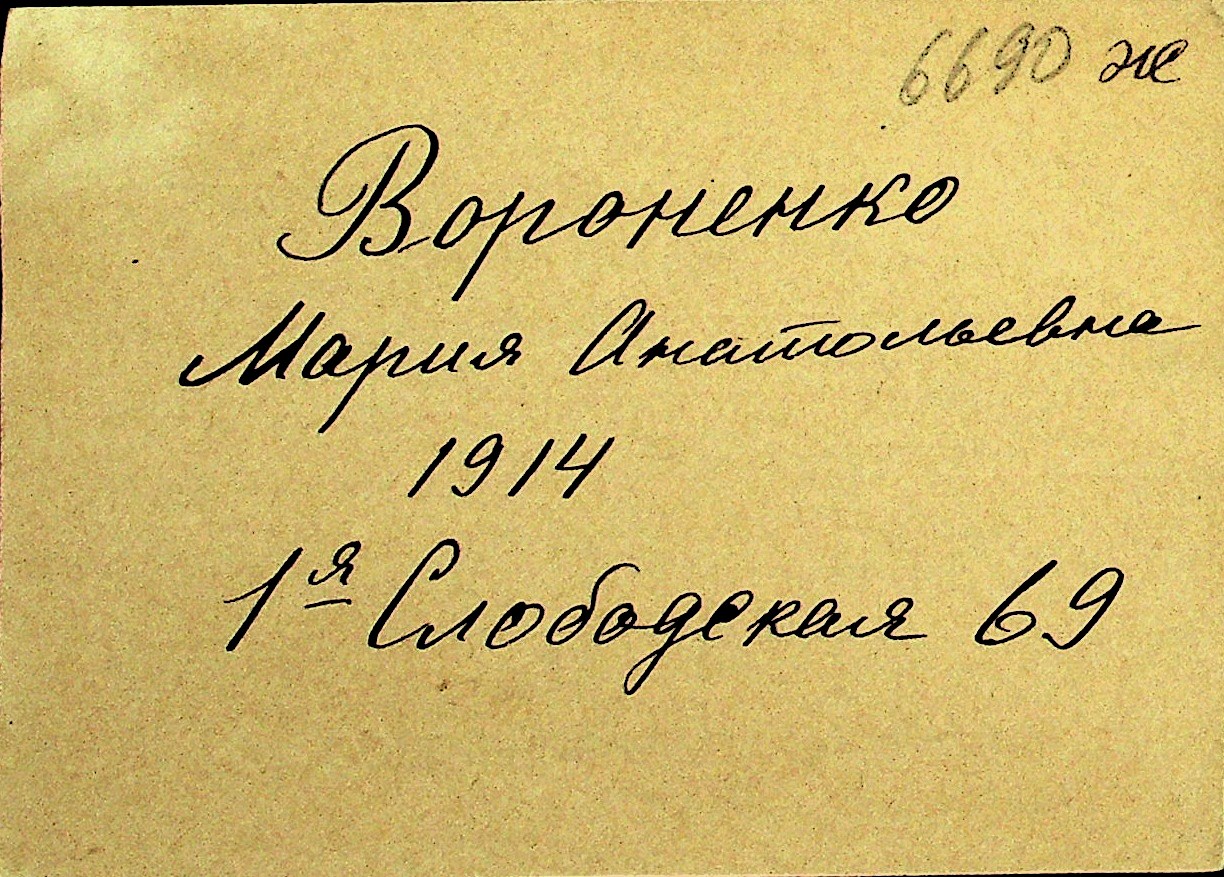 6690 ж
Вороненко
Мария Анатольевна
1914
1я Слободская 69